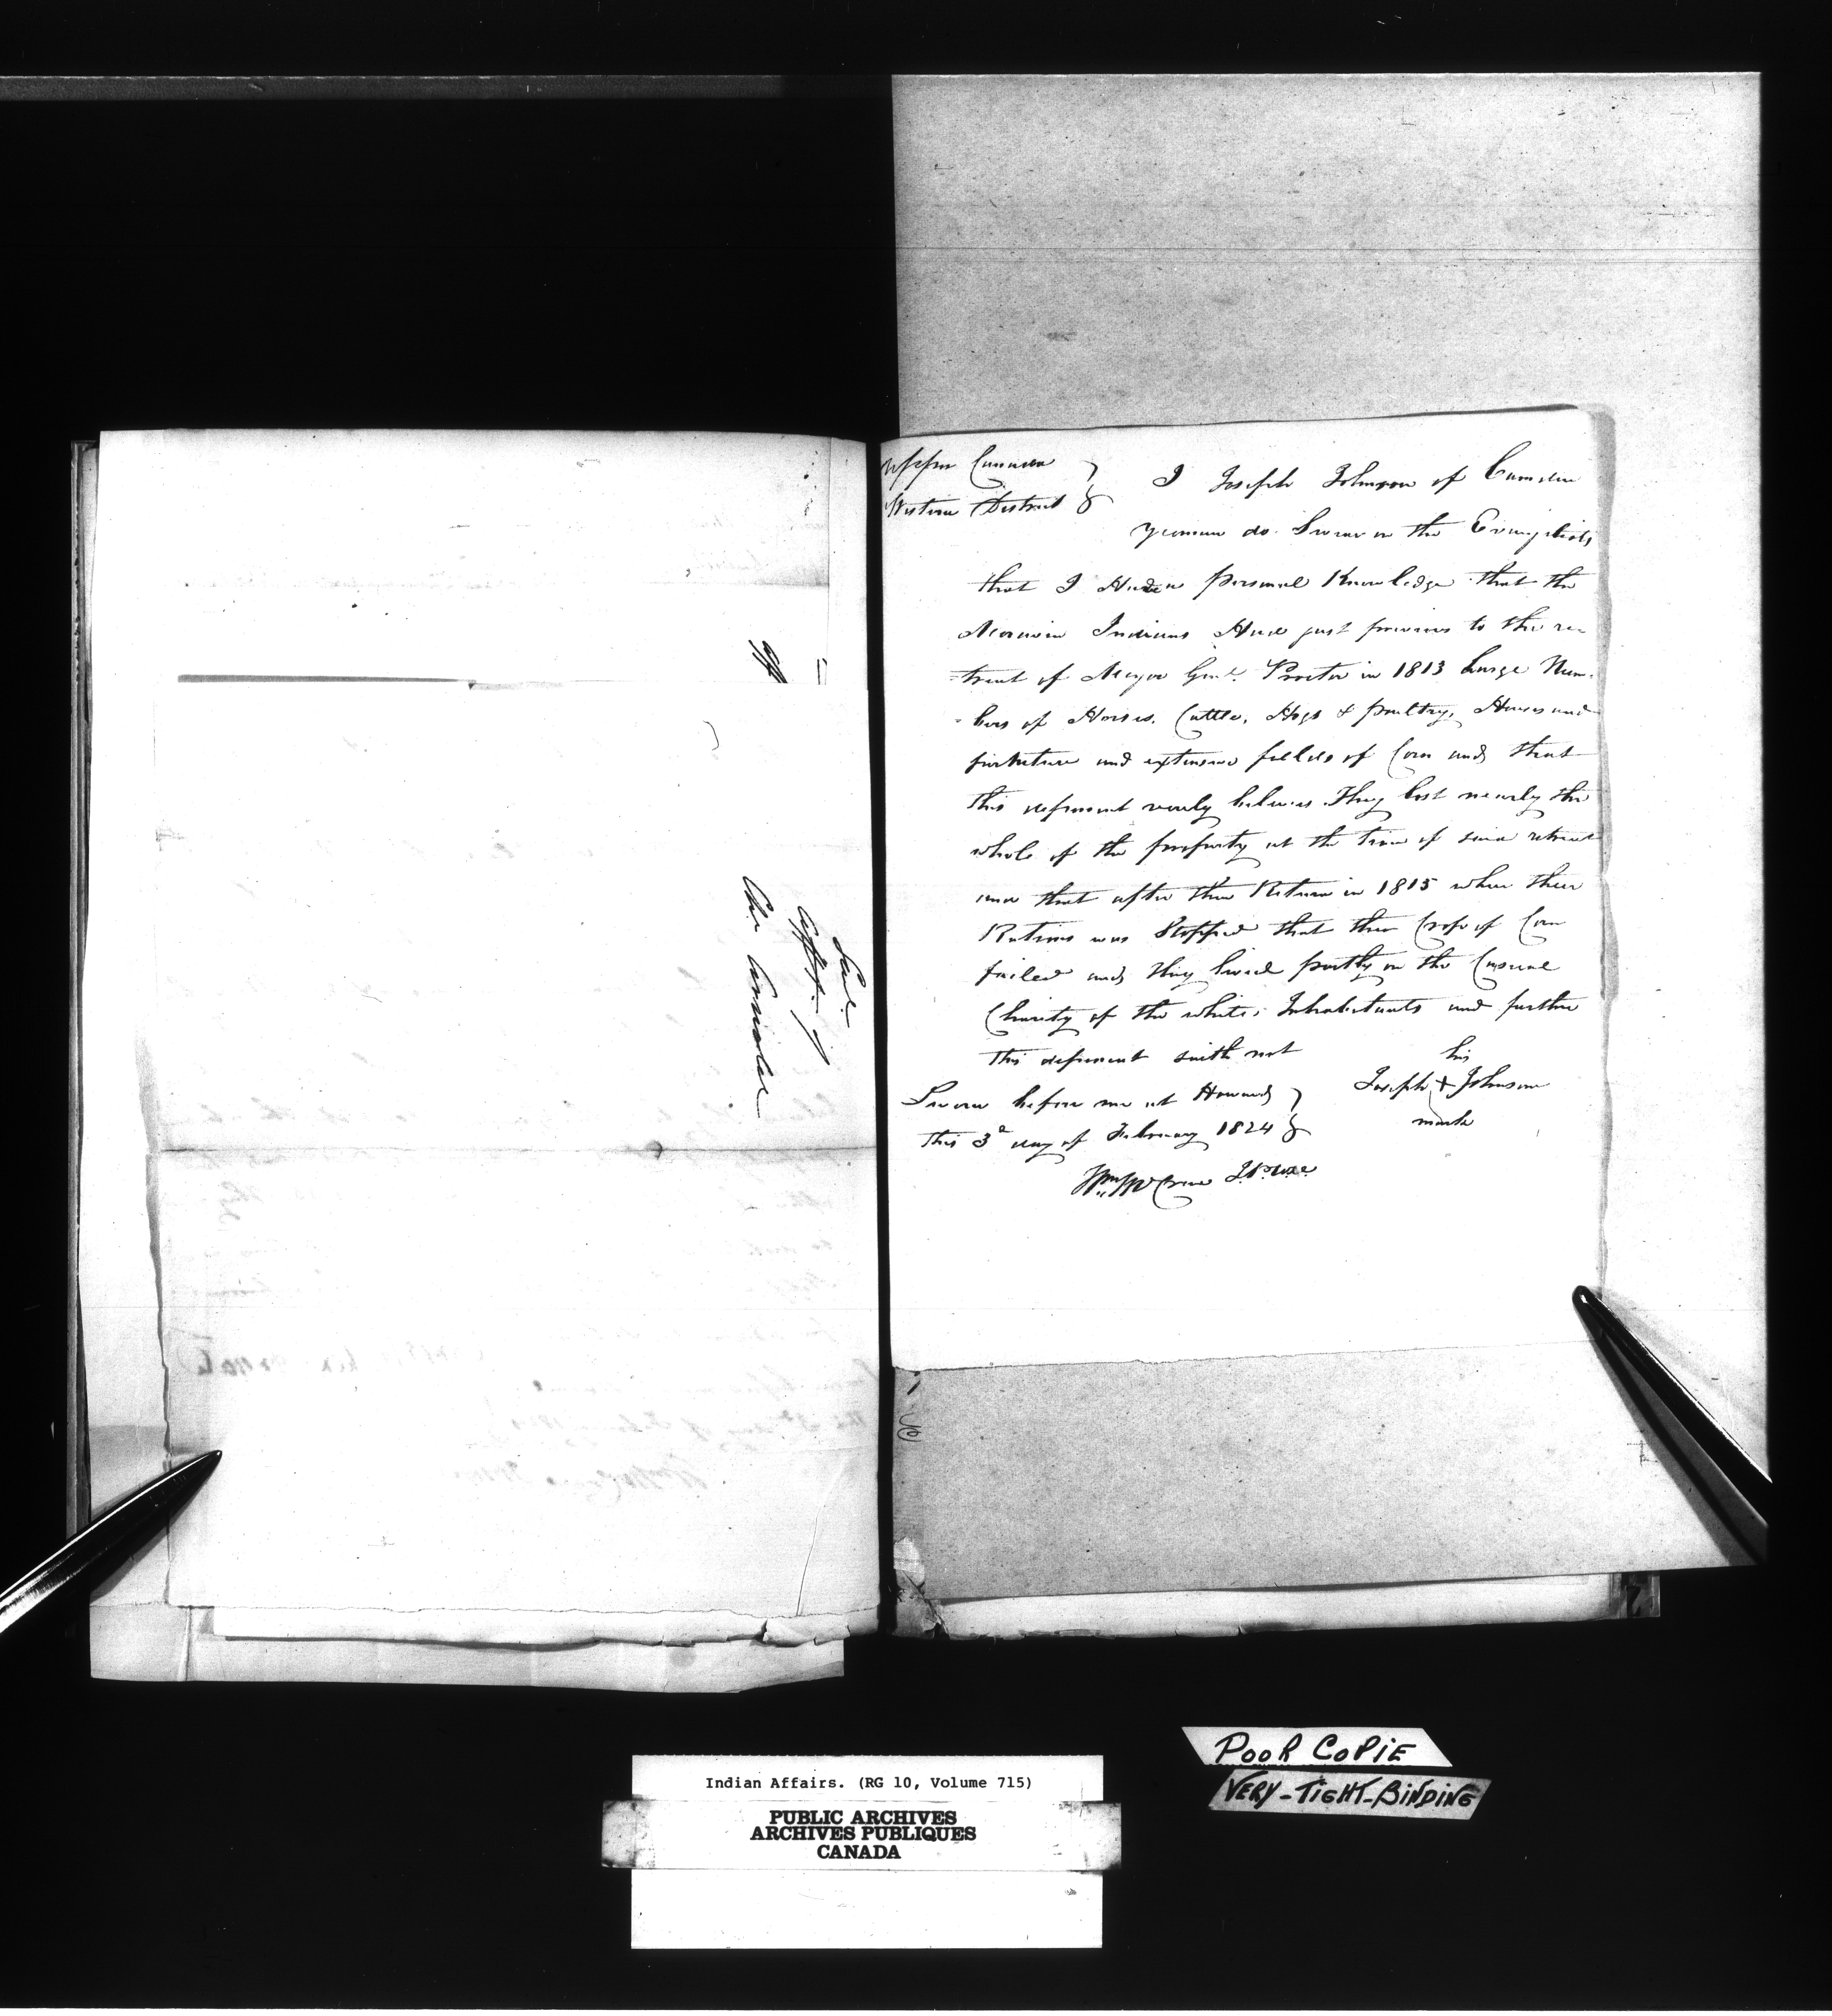 Upper Cannada }
Western District }
I Joseph Johnson of Camden
yeoman do Swear on the Evangelists
that I Have a personal Knowledge that the
Moravian Indians Had just previous to the re-
-treat of Major Genl. Proctor in 1813 Large Num-
-bers of Horses, Cattle, Hogs & poultry, Houses and
furniture and extensive fields of Corn and that
this deponent verily believes They lost nearly the
whole of the property at the time of said retreat
and that after their Return in 1815 when their
Rations was Stopped that their Crops of Corn
failed and they lived partly on the Casual
Charity of the white Inhabitants and further
this deponent saith not
Sworn before me at Howard }
this 3d day of February 1824 }
his
Joseph + Johnson
mark
Wm McCrae J.P. W.D.
Indian Affairs. (RG 10, Volume 715)
PUBLIC ARCHIVES
ARCHIVES PUBLIQUES
CANADA
POOR COPIE
VERY-TIGHT-BINDING